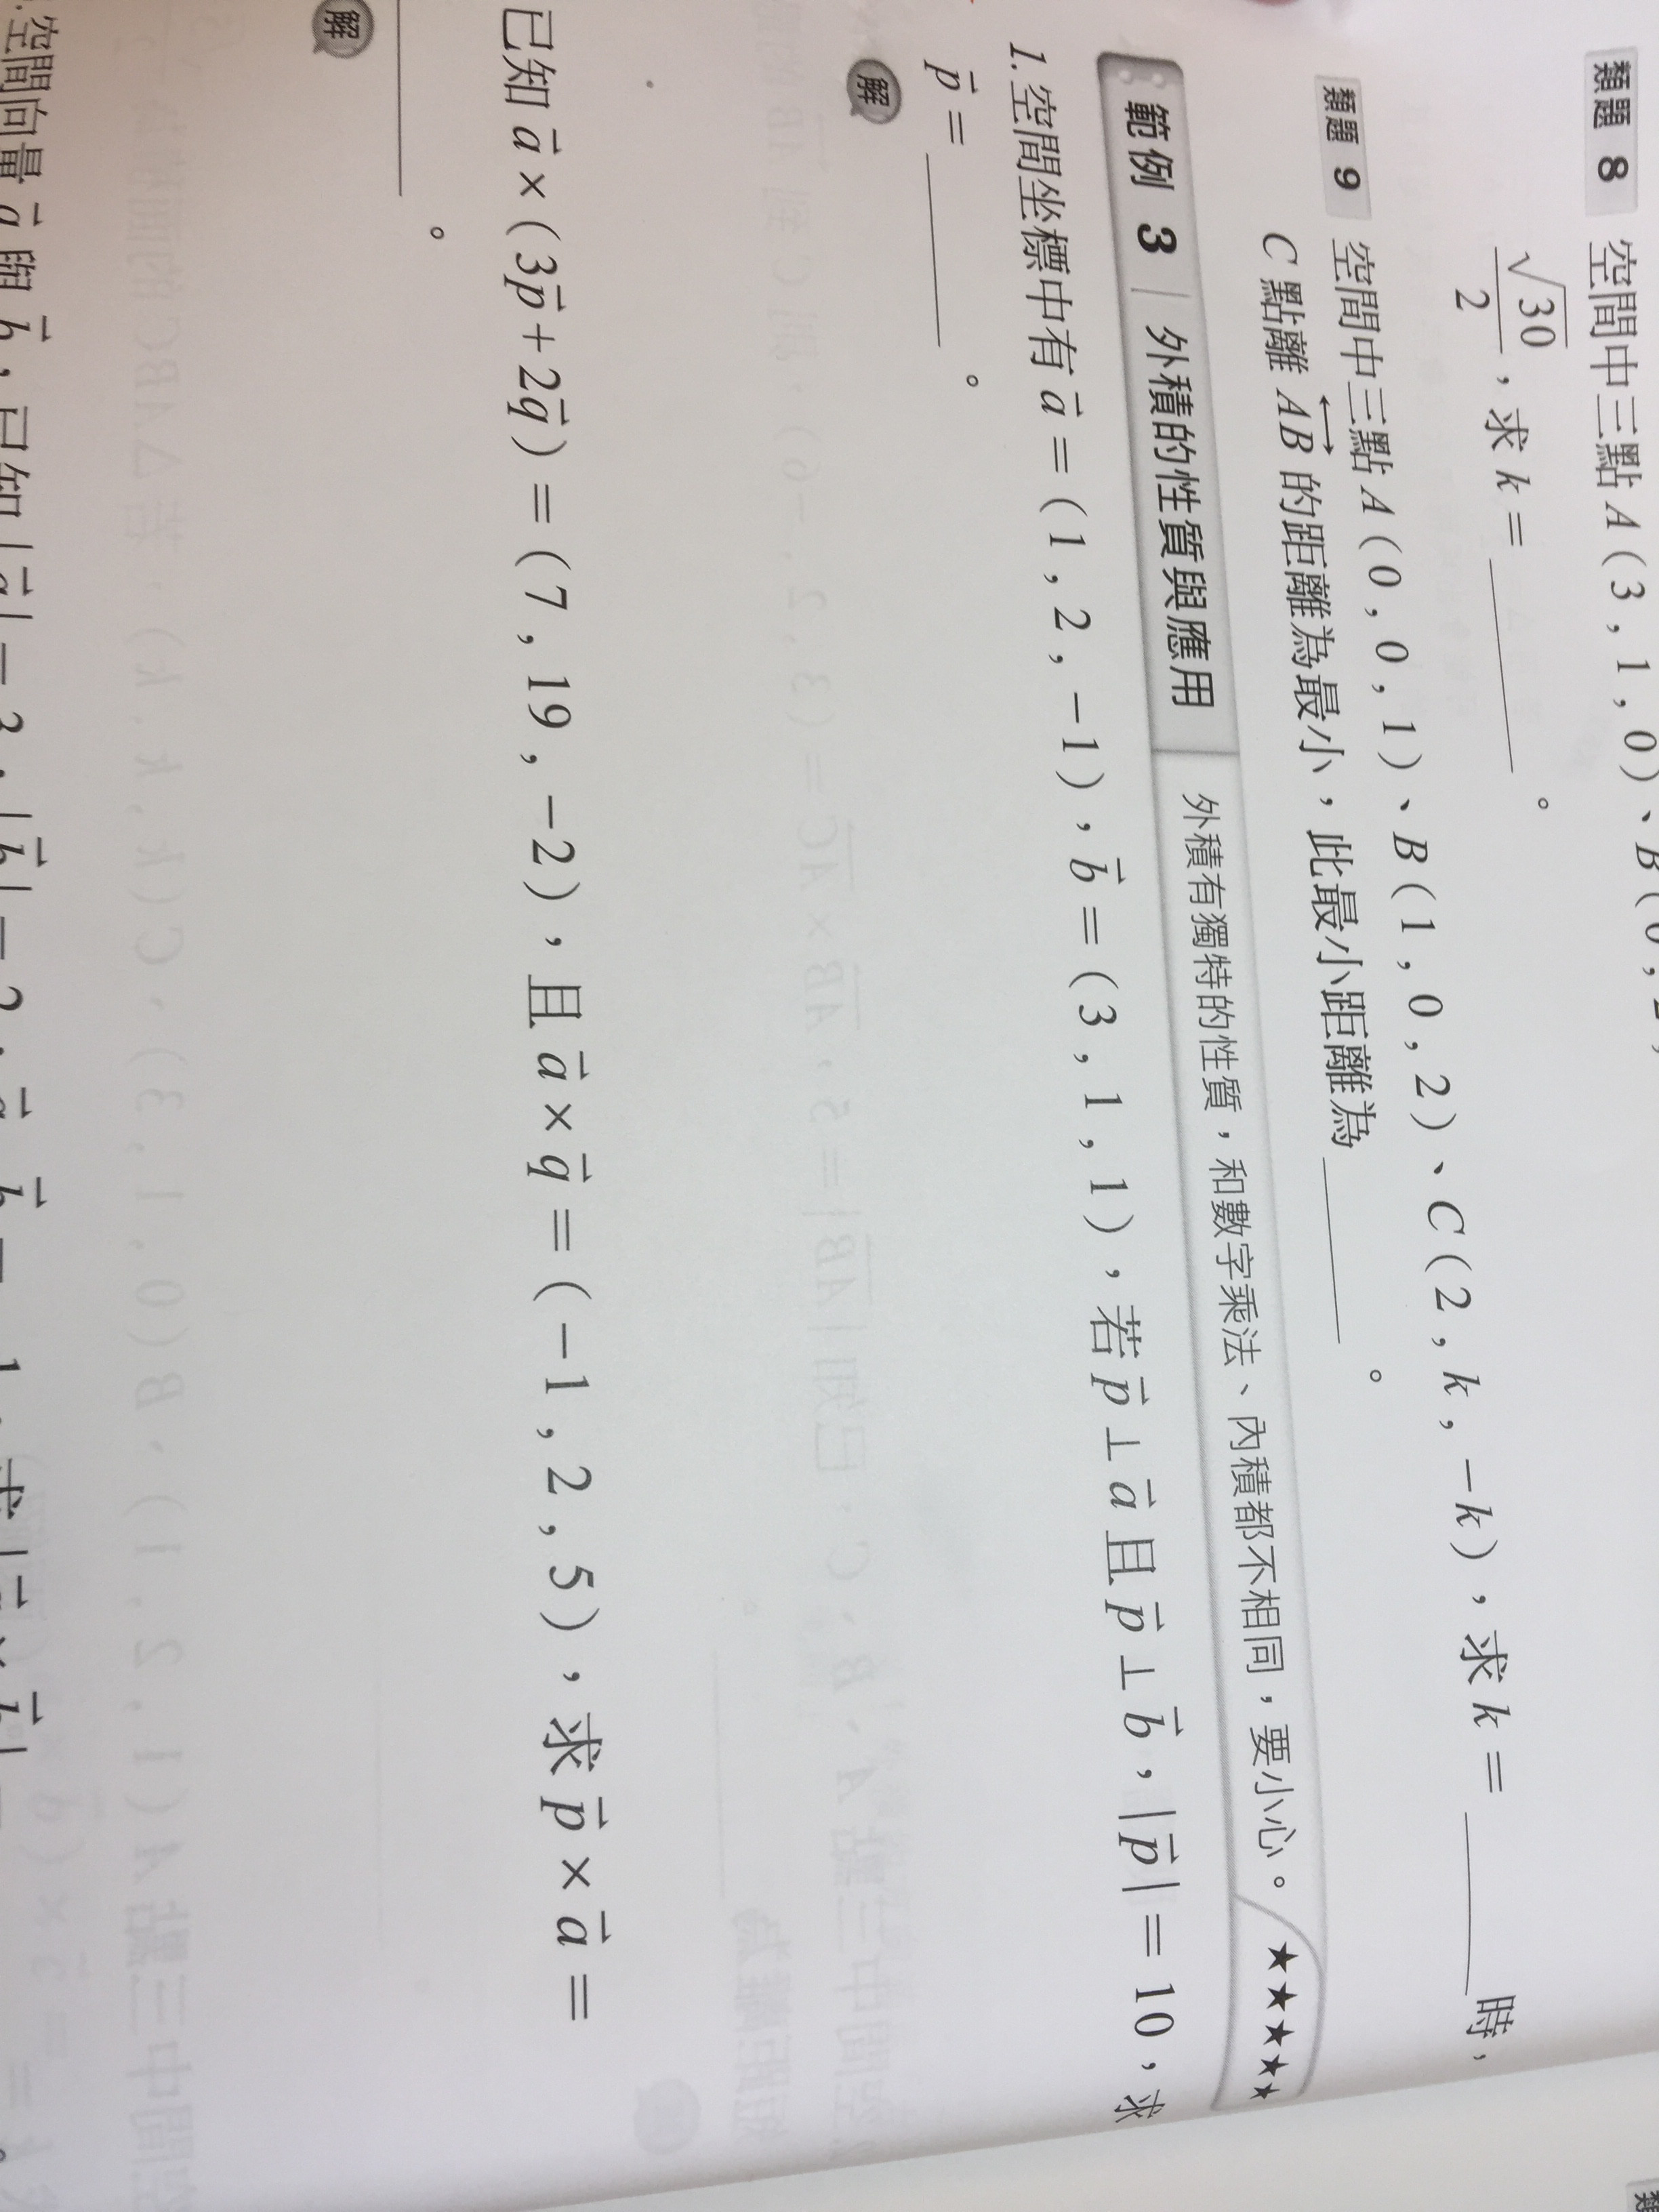 類題 8 空間中三點 A(3, 1, 0)、B(0,
√30/2,求 k = ______。
類題 9 空間中三點 A(0, 0, 1)、B(1, 0, 2)、C(2, k, −k),求 k = ______ 時,
C 點離 AB 的距離為最小,此最小距離為 ______。
範例 3 | 外積的性質與應用 外積有獨特的性質,和數字乘法、內積都不相同,要小心。 ★★★★★
1. 空間坐標中有 a⃗ = (1, 2, −1),b⃗ = (3, 1, 1),若 p⃗ ⊥ a⃗ 且 p⃗ ⊥ b⃗,|p⃗| = 10,求
p⃗ = ______。
解
已知 a⃗ × (3p⃗ + 2q⃗) = (7, 19, −2),且 a⃗ × q⃗ = (−1, 2, 5),求 p⃗ × a⃗ =
______。
解
空間向量 a⃗ 與 b⃗,已知 |a⃗| = 3,|b⃗| = 2,
類